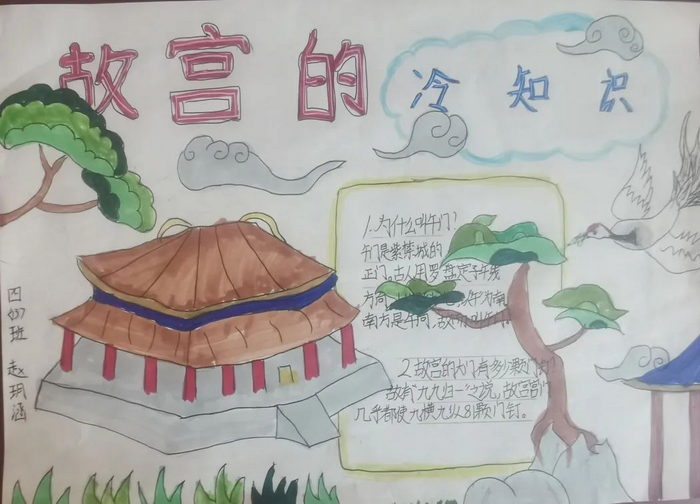 故宫的
冷知识
1.为什么叫午门?
午门是紫禁城的
正门。古人用罗盘定子午线
方向
南方是午向,故
2.故宫的大门有多少颗门钉
故有"九九归一"之说,故宫宫门
几乎都使九横九纵81颗门钉。
四(9)班 赵玥涵